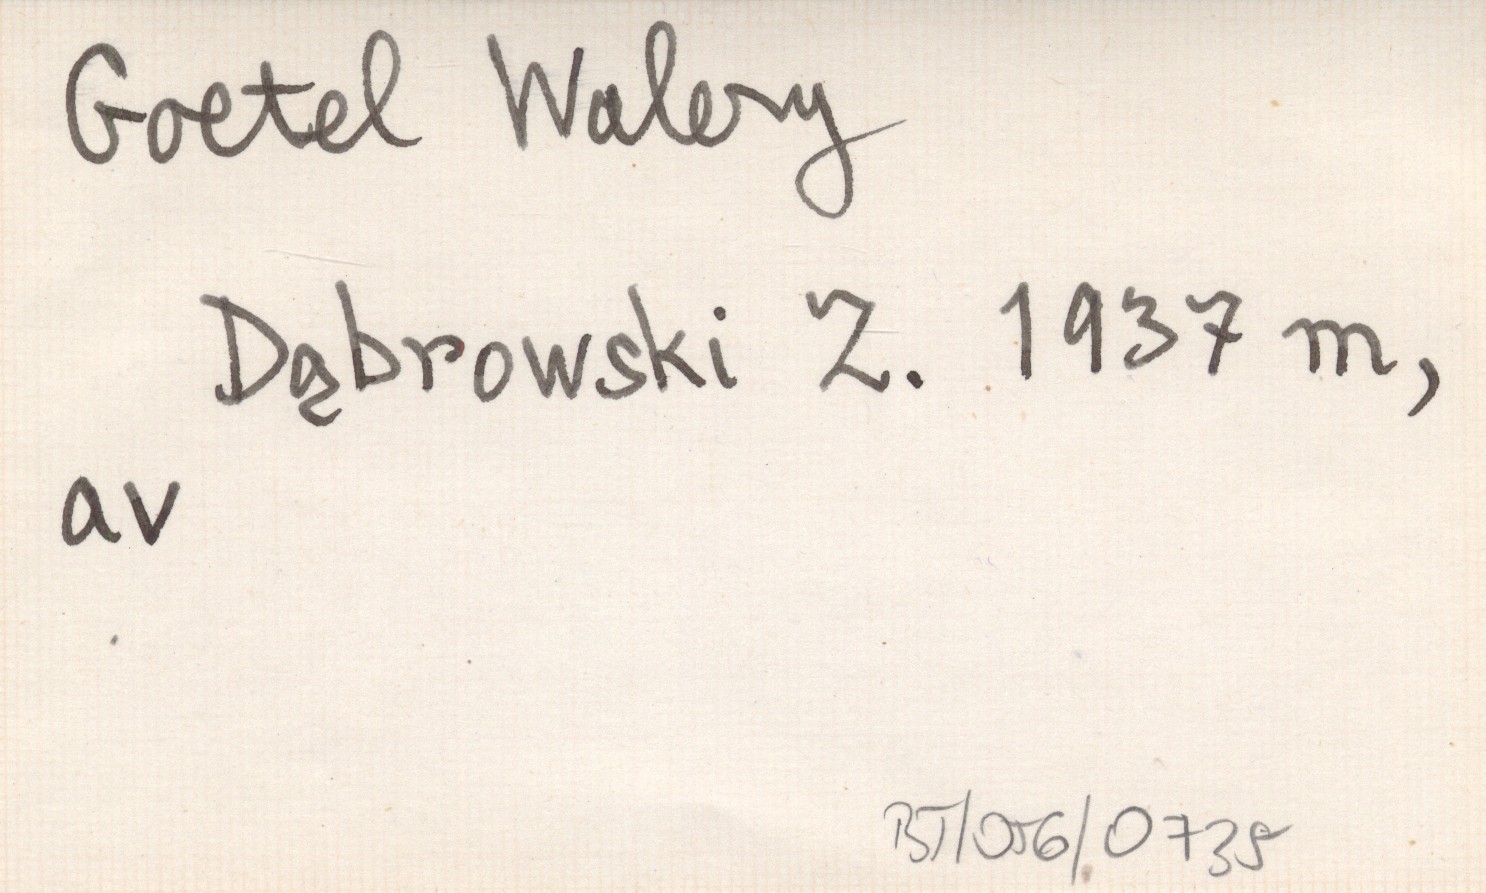 Goetel Walery
Dąbrowski Z. 1937 m,
av
BT/056/0735